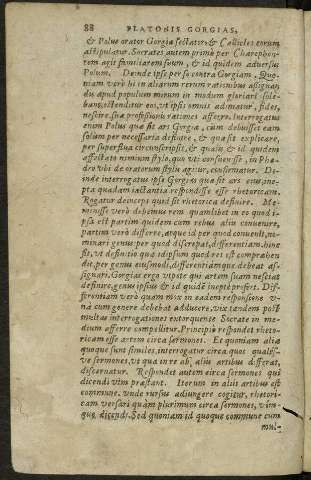 88 PLATONIS GORGIAS,
& Polus orator Gorgiæ sectator, & Callicles eorum
astipulator. Socrates autem primo per Chærephon-
tem agit familiarem suum, & id quidem adversus
Polum. Deinde ipse per se contra Gorgiam. Quo-
niam verò hi in aliarum rerum rationibus assignan-
dis apud populum mirum in modum gloriari sole-
bant, ostenditur eos, ut ipsis omnis adimatur, fides,
nescire, suæ professionis rationes afferre. Interrogatus
enim Polus quæ sit ars Gorgiæ, cùm debuisset eam
solum per necessaria definire, & quæ sit explicare,
per superflua circunscripsit, & qualis & id quidem
affectato nimium stylo, quo uti consuesse, in Phæ-
dro ubi de oratorum stylis agitur, confirmatur. De-
inde interrogatus ipse Gorgias quæ sit ars eius, ine-
pta quadam iactantia respondisse esse rhetoricam.
Rogatur deinceps quid sit rhetorica definire. Me-
minisse verò debemus rem quamlibet in eo quod i-
psa est partim quidem cum rebus aliis convenire,
partim verò differre, atque id per quod convenit, no-
minari genus: per quod discrepat, differentiam. hinc
fit, ut definitio qua idipsum quod res est comprehen
dit, per genus eiusmodi, differentiámque debeat as-
signari. Gorgias ergo utpote qui artem suam nesciat
definire, genus ipsius & id quidē ineptè profert. Dif-
ferentiam verò quam mox in eadem responsione v-
nà cum genere debebat adducere, vix tandem post
multas interrogationes extorquente Socrate in me-
dium afferre compellitur. Principiò respondet rheto-
ricam esse artem circa sermones. Et quoniam aliæ
quoque sunt similes, interrogatur circa quos qualísve
sermones, ut qua in re ab, aliis artibus differat,
discernatur. Respondet autem circa sermones qui
dicendi vim præstant. Iterum in aliis artibus est
commune. unde rursus adiungere cogitur, rhetori-
cam versari quàm plurimum circa sermones, vim-
que dicendi. Sed quoniam id quoque commune cum
mul-